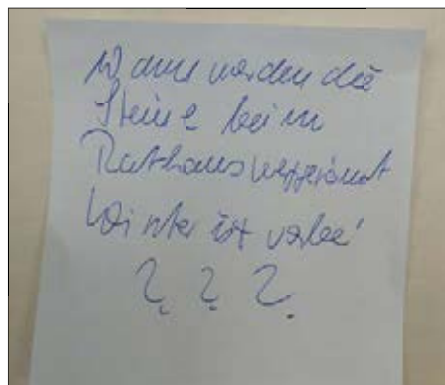 Wann werden die
Steine beim
Rathaus weggeräumt
Winter ist vorbei
? ? ?